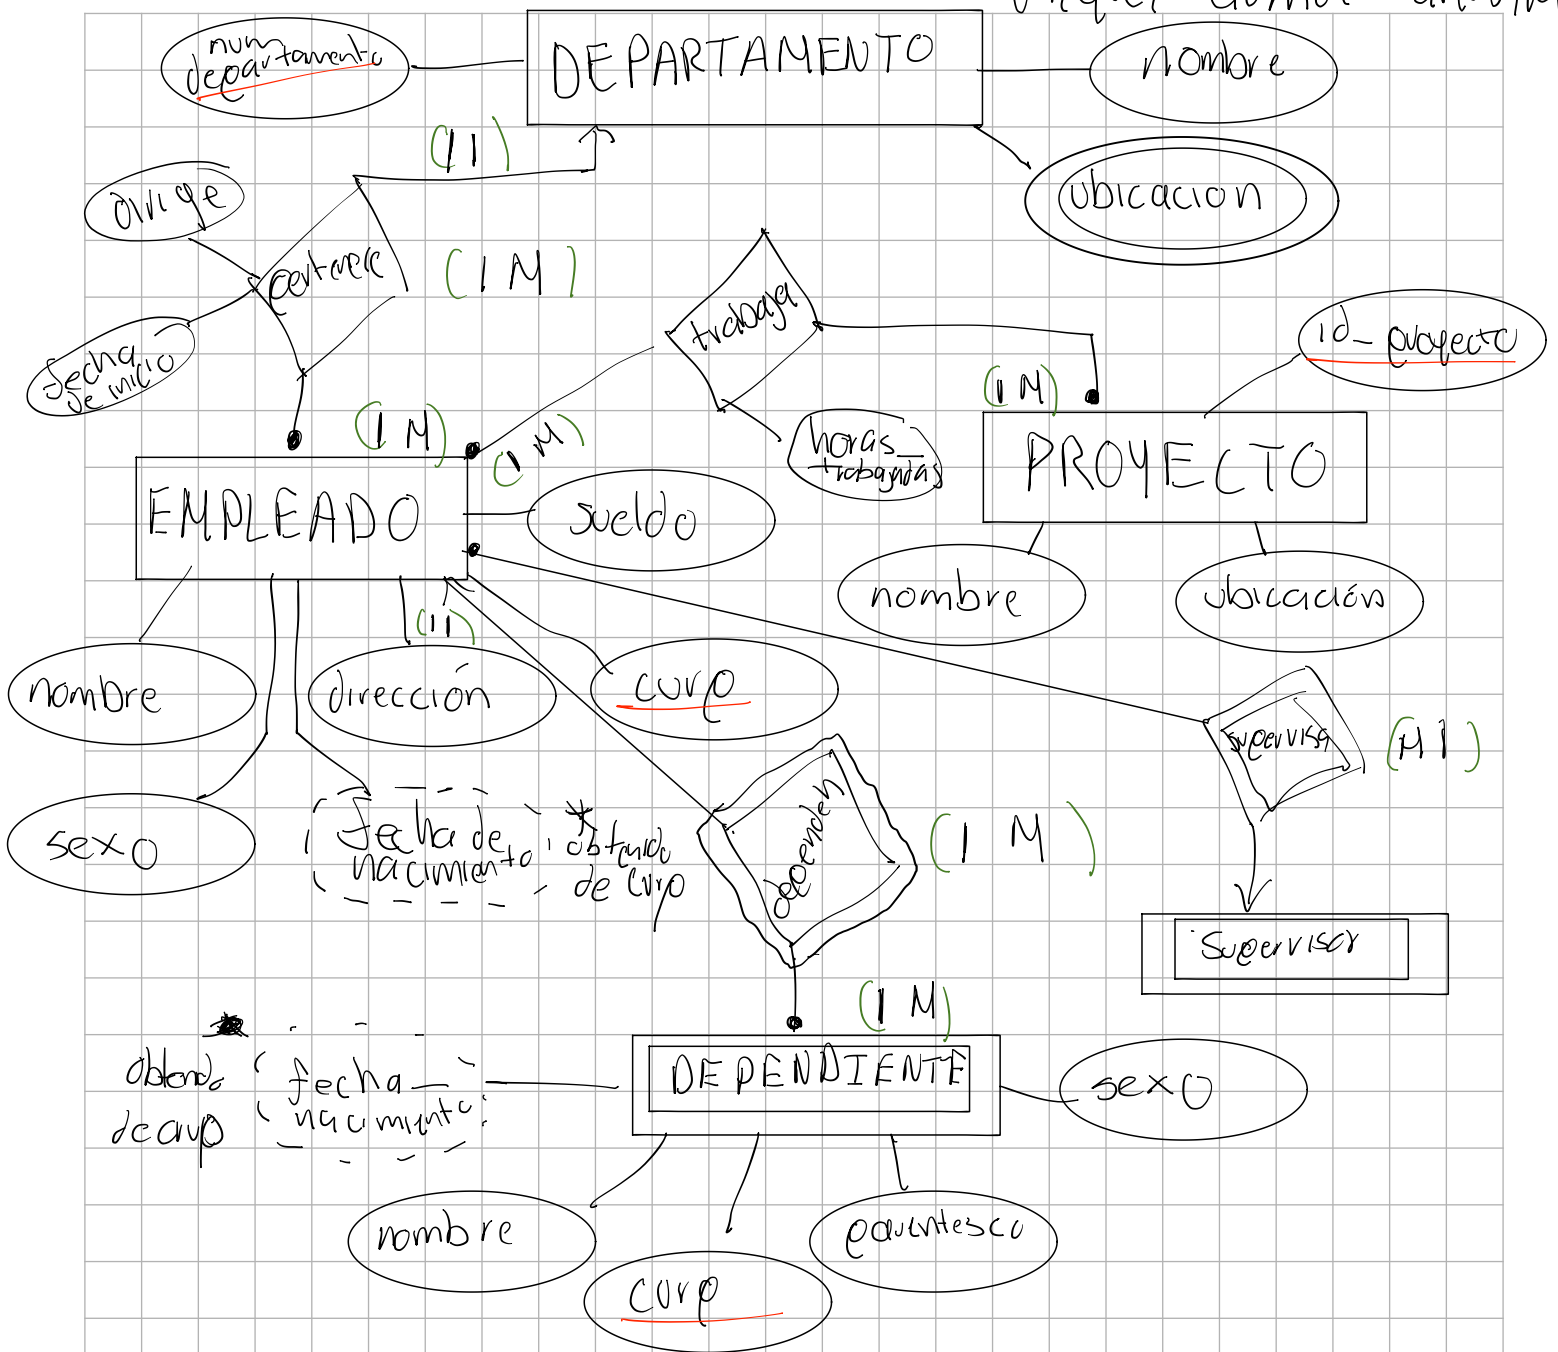 num
departamento
DEPARTAMENTO
nombre
(1 1)
ubicacion
dirige
pertenece
(1 M)
trabaja
fecha
de inicio
id_proyecto
(1 M)
(1 M)
(1 M)
horas_
trabajadas
PROYECTO
EMPLEADO
sueldo
nombre
ubicación
(1 1)
nombre
dirección
curp
supervisa
(M 1)
sexo
fecha de
nacimiento
* obtenido
de curp
dependen
(1 M)
Supervisor
(1 M)
DEPENDIENTE
fecha_
nacimiento
de curp
sexo
nombre
parentesco
curp